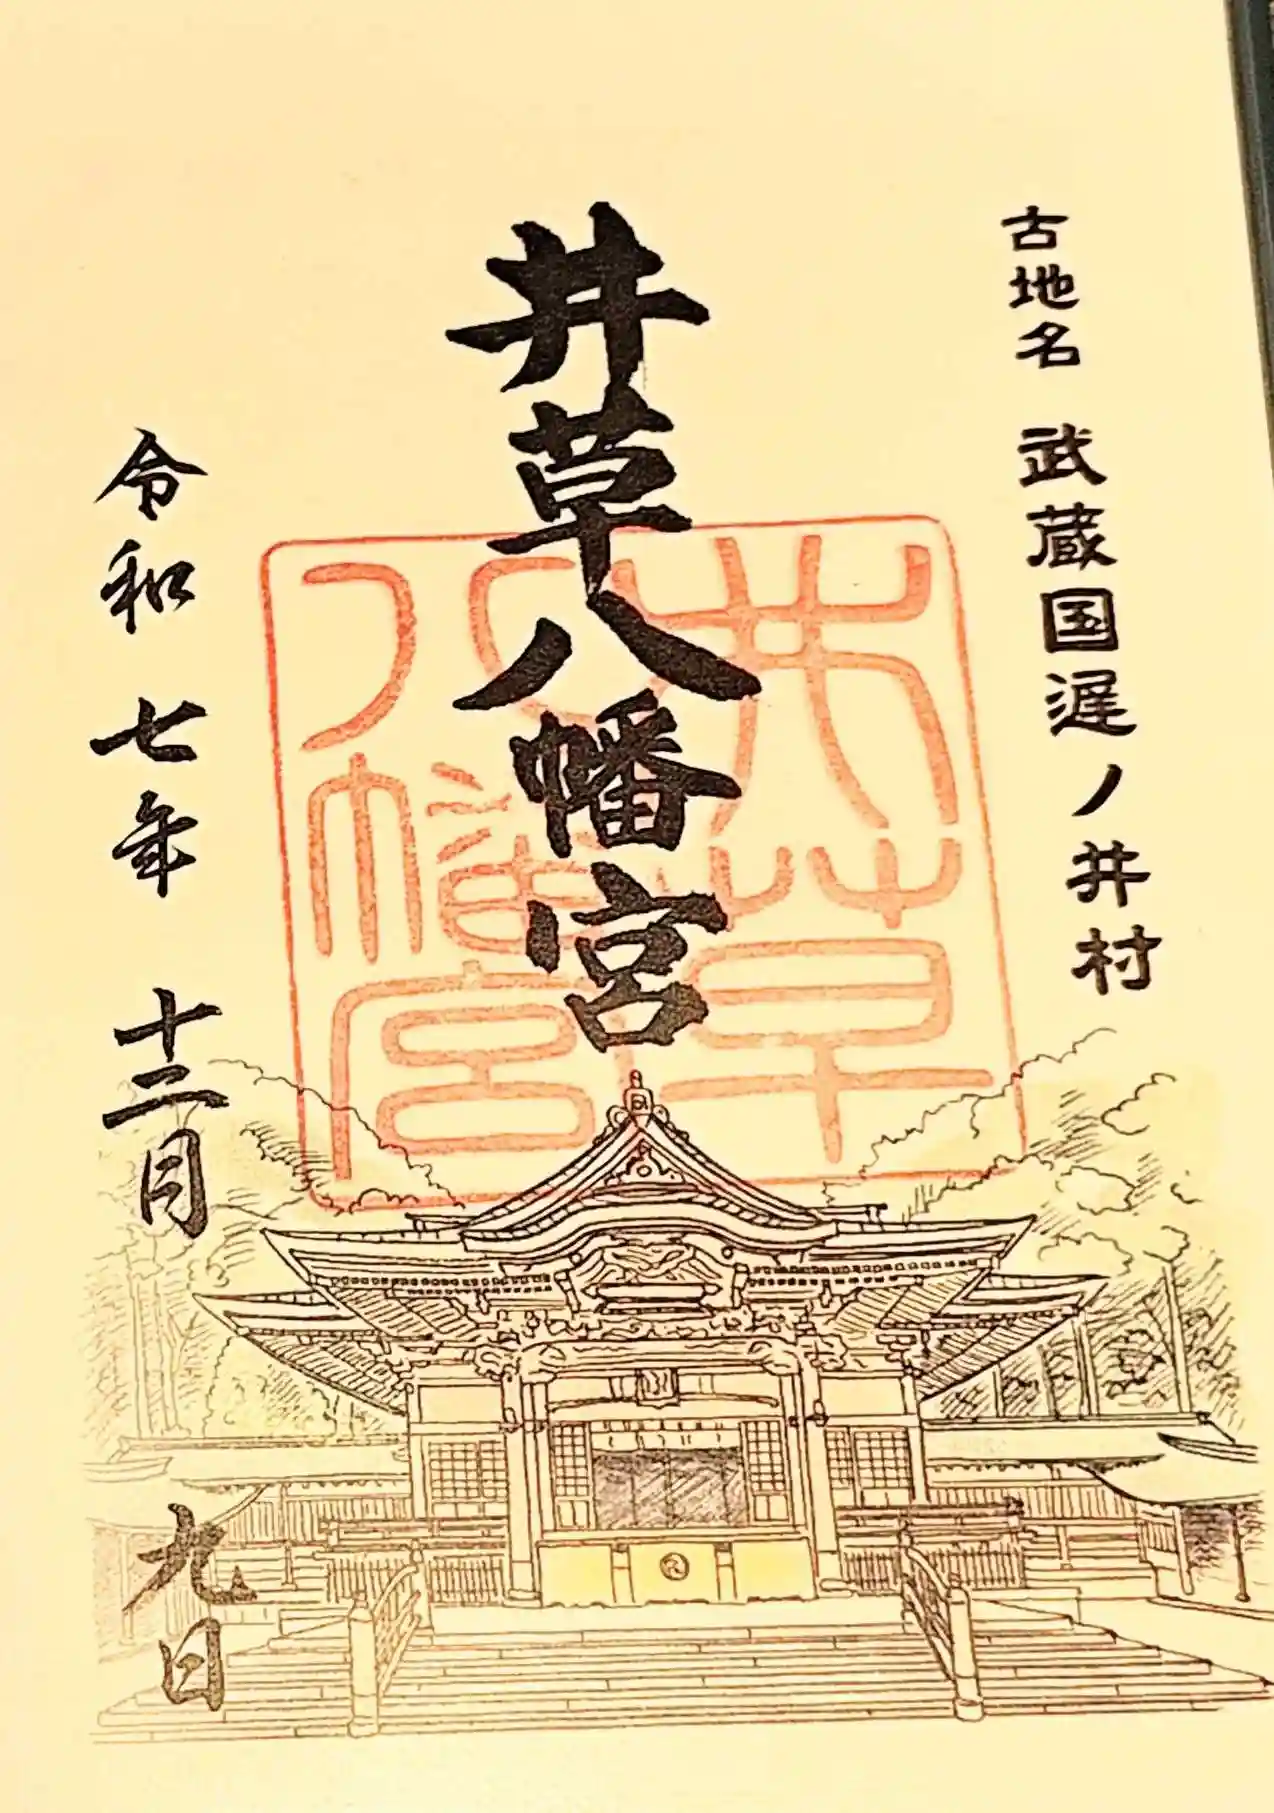 古地名 武蔵国遅ノ井村
井草八幡宮
井草八幡宮
令和 七年 十二月 九日